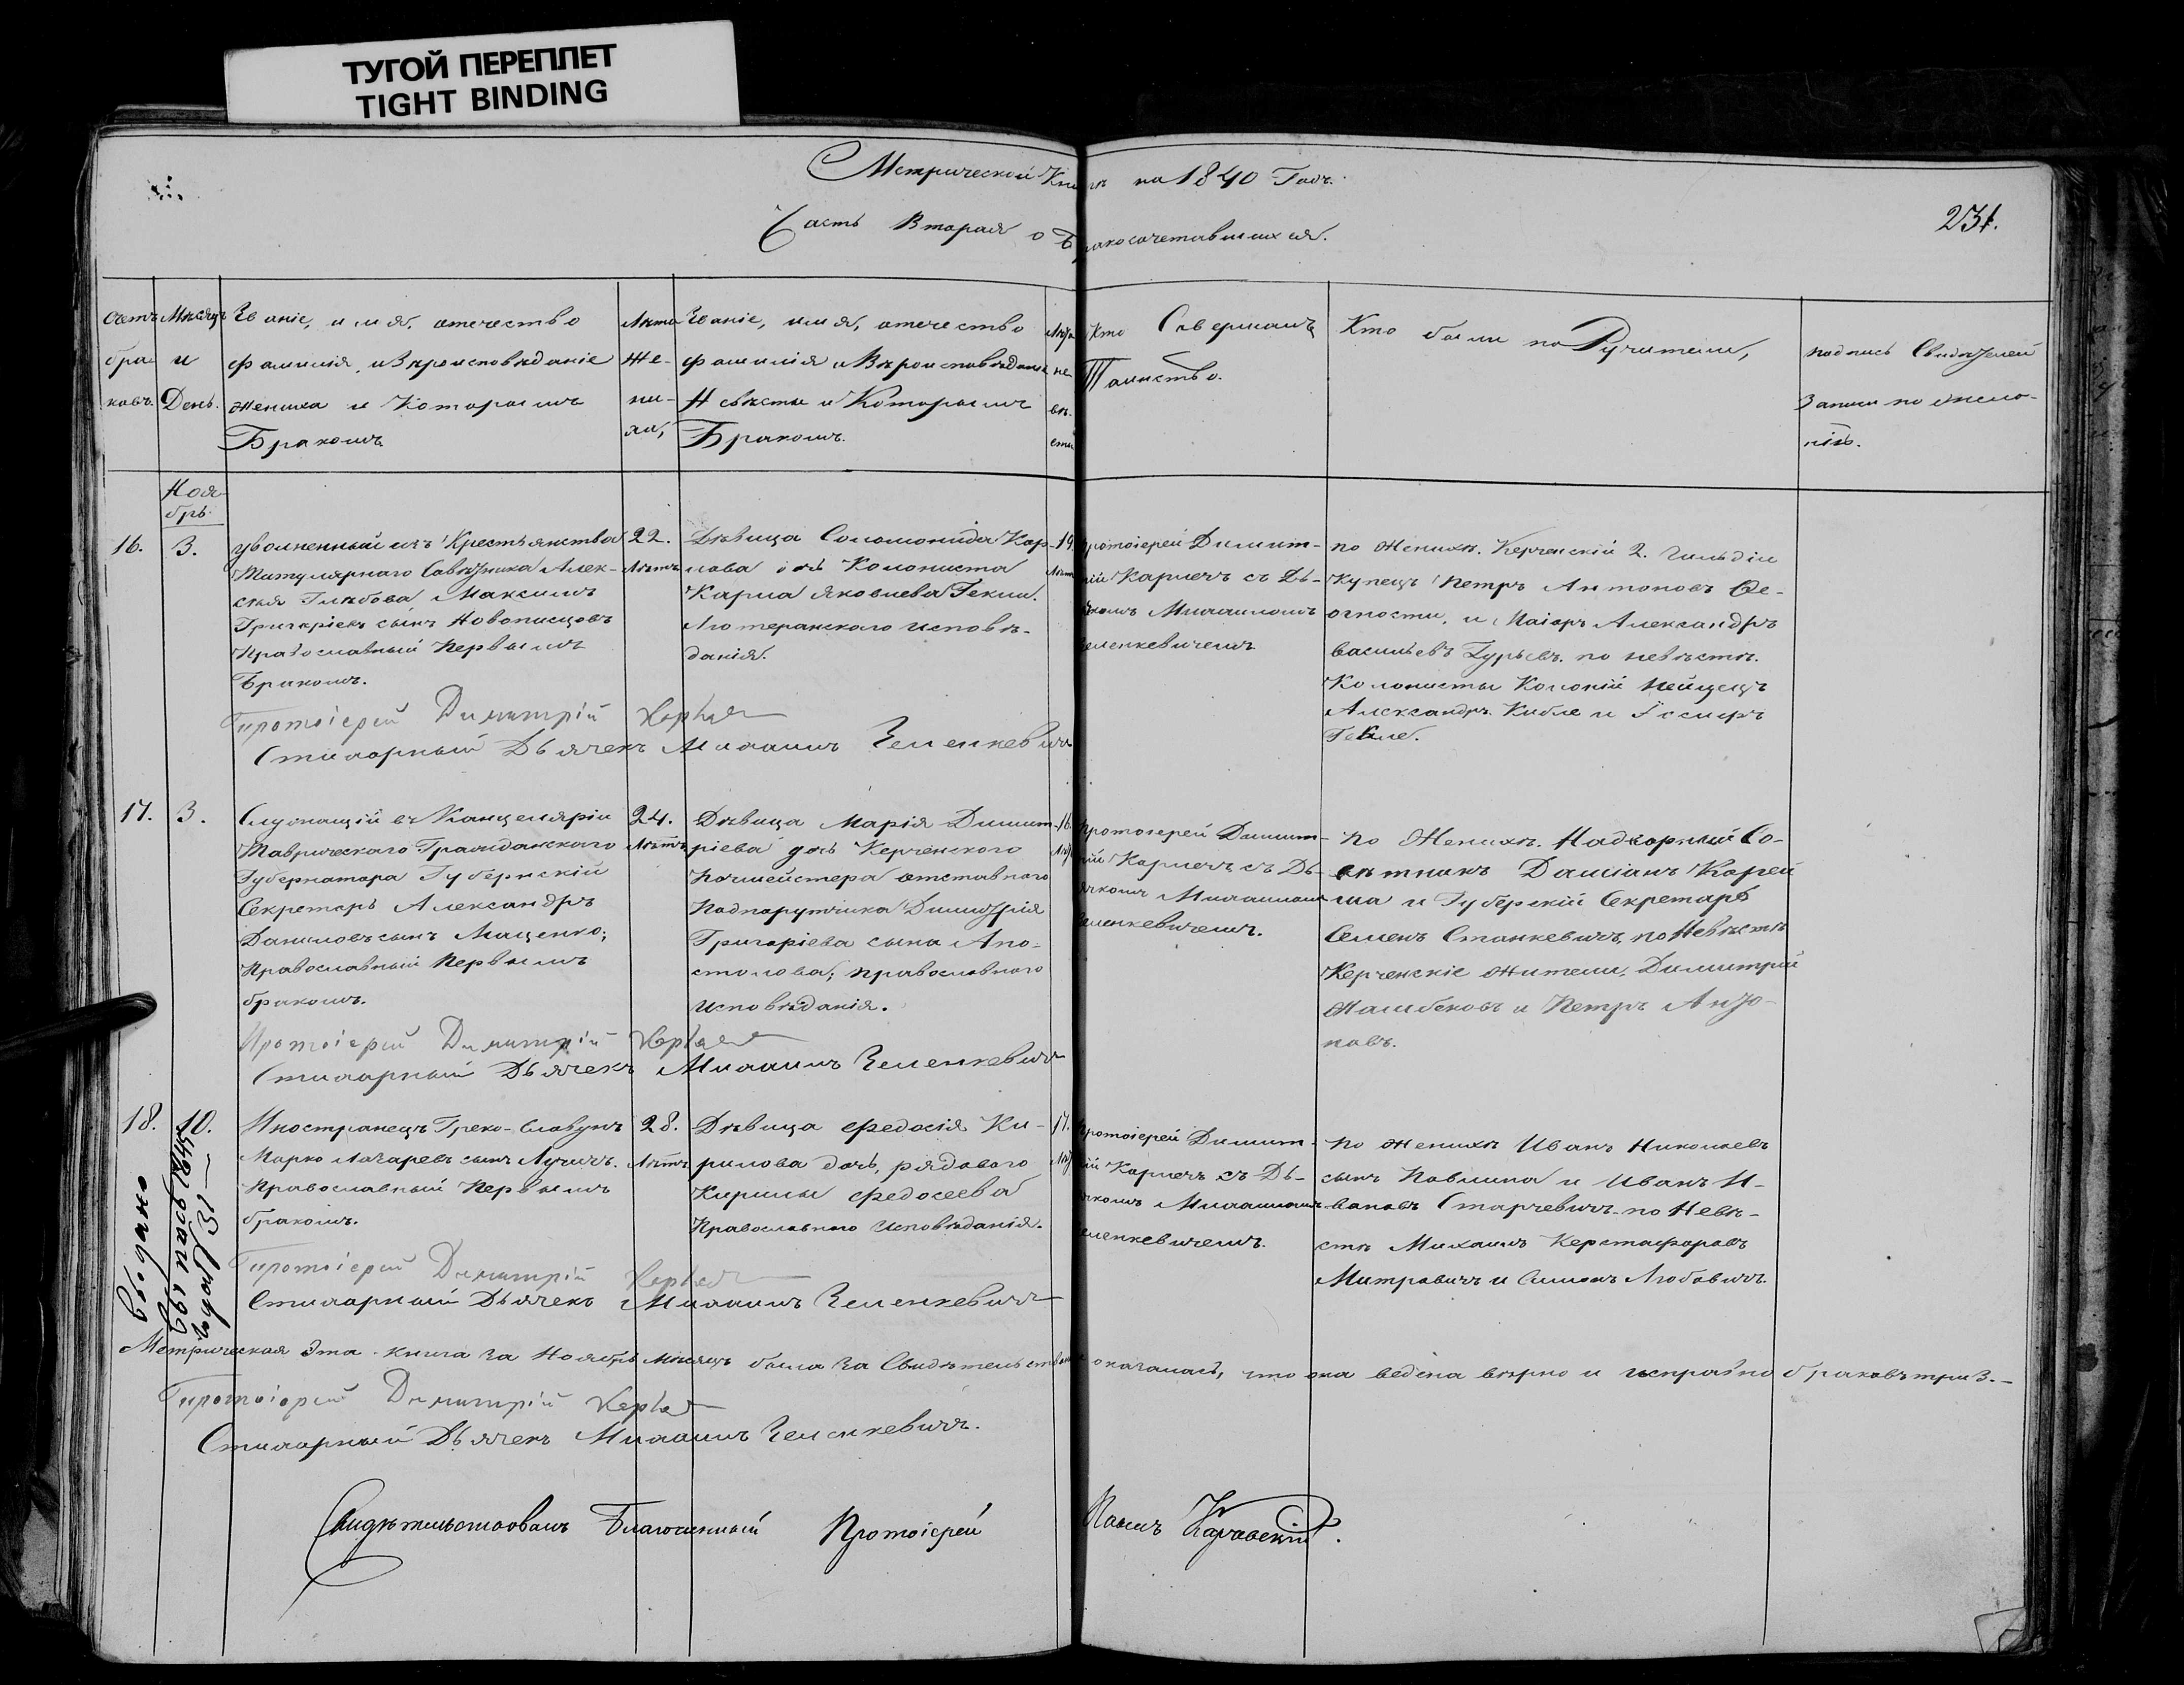 ТУГОЙ ПЕРЕПЛЕТ
TIGHT BINDING
Метрической Книги на 1840 Годъ.
Часть Вторая о Бракосочетавшихся.
231.
Счетъ бра ковъ.
Мѣсяцъ и День.
Званіе, имя, отечество
фамилія, и Вѣроисповѣданіе
жениха и Которымъ
Бракомъ
Лѣта же- ни- ха,
Званіе, имя, отечество
фамилія и Вѣроисповѣданіе
Невѣсты и Которымъ
Бракомъ.
Лѣта не вѣ- сты
Кто Совершалъ
Таинство.
Кто были по Ручители,
подпись Свидѣтелей
Записи по жела-
нію.
Ноя-
брь.
16.
3.
уволненный изъ Крестьянства
Титулярнаго Совѣтника Алек-
сѣя Глѣбова Максимъ
Григоріевъ сынъ Новописцовъ
Православный Первымъ
Бракомъ.
22.
Лѣтъ
Дѣвица Соломонида Кар-
лова дочь Колониста
Карла Яковлева Гекли.
Лютеранского исповѣ-
данія.
19.
Лѣт
Протоіерей Димит-
рій Карпечъ съ Дь-
ячкомъ Михаиломъ
Зеленкевичемъ
по Женихѣ. Керченскій 2. гильдіи
Купецъ Петръ Антоновъ Ѳе-
огности, и Маіоръ Александръ
васильевъ Гурьевъ. по невѣстѣ.
Колонисты Колоній Нейзецъ
Александръ Кибле и
Протоіерей Димитрій
Стихарный Дьячекъ Михаилъ Зеленкевичъ
17.
3.
Служащій въ Канцеляріи
Таврическаго Гражданскаго
Губернатора Губернскій
Секретарь Александръ
Даниловъ сынъ Мащенко;
Православный Первымъ
бракомъ.
24.
Лѣтъ
Дѣвица Марія Димит-
ріева дочь Керченского
Почмейстера отставного
Подпорутчика Димитрія
Григоріева сына Апо-
столова; православного
исповѣданія.
16.
Лѣт
Протоіерей Димит-
рій Карпечъ съ Дь-
ячкомъ Михаиломъ
Зеленкевичемъ.
по Женихѣ. Надворный Со-
вѣтникъ Даміанъ Карей
ша и Губерскій Секретарь
Семенъ Станкевичъ, по Невѣстѣ
Керченскіе жители, Димитрий
и Петръ Анто-
новъ.
Протоіерей Димитрій
Стихарный Дьячекъ Михаилъ Зеленкевичъ
18.
10.
Иностранецъ Греко-Славунъ
Марко Лазаревъ сынъ Лучичъ.
Православный Первымъ
бракомъ.
28.
Лѣтъ
Дѣвица Федосія Ки-
рилова дочь, рядового
Кирилы Федосеева
Православного исповѣданія.
17.
Лѣт
Протоіерей Димит-
рій Карпечъ съ Дь-
ячкомъ Михаиломъ
Зеленкевичемъ.
По женихѣ Иванъ Николаевъ
сынъ Павлина и Иванъ И-
вановъ Старчевичъ. по Невѣ-
стѣ Михаилъ Керстафоровъ
Митровичъ и Симонъ Любовичъ.
Протоіерей Димитрій
Стихарный Дьячекъ Михаилъ Зеленкевичъ
выдано
Метрическая эта книга за Ноябрь мѣсяцъ была За Свидѣтельствована оказалась, что она ведена вѣрно и исправно браковъ три 3.
Протоіерей Димитрій
Стихарный Дьячекъ Михаилъ Зеленкевичъ.
Свидѣтельствовалъ Благочинный Протоіерей